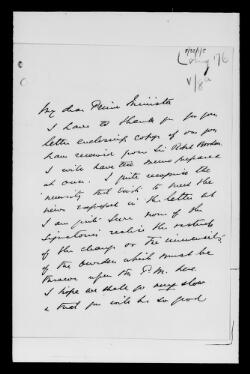 Aug '16
V/8a
My dear Prime Minister
I have to thank you for your
letter enclosing copy of one you
have received from Sir Robt Borden
I will have the memo prepared
at once. I quite recognise the
necessity that exists to meet the
views expressed in the letter but
I am quite sure none of the
signatories realise the
of the change or the immensity
of the burden which must be
thrown upon the P.M. here
I hope we shall go very slow
& that you will be so good